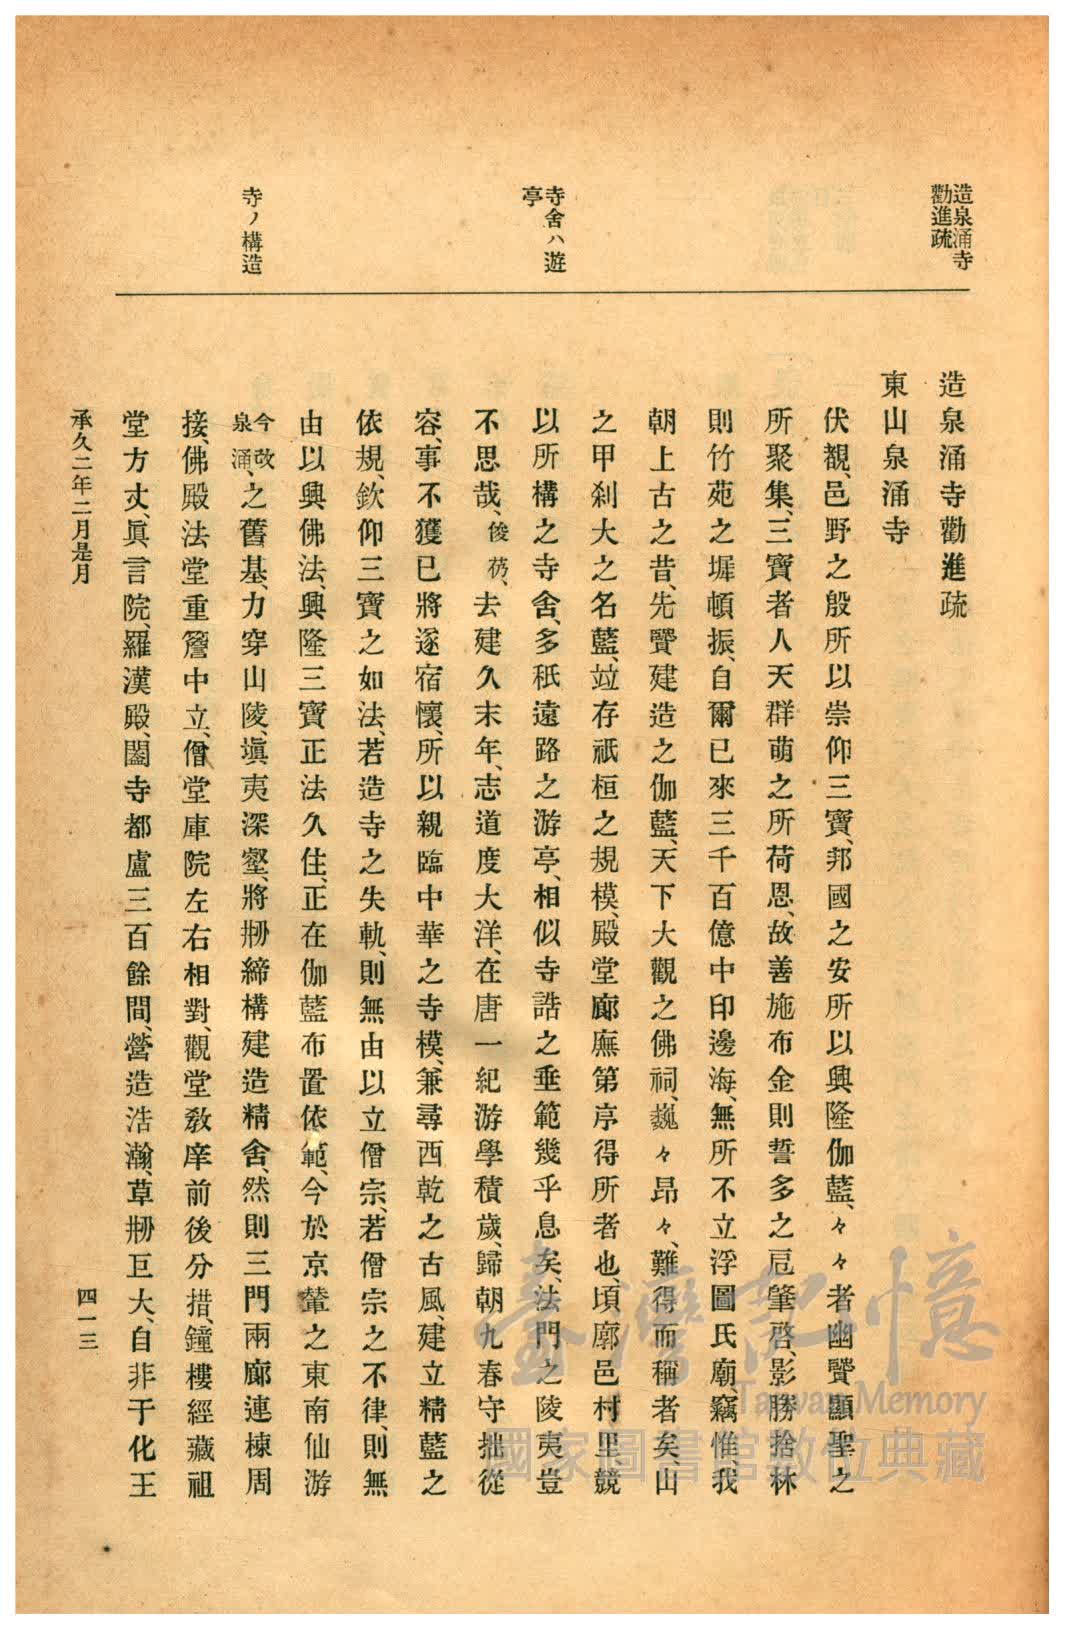 造泉涌寺
勸進疏
寺舍ハ遊
亭
寺ノ構造
造泉涌寺勸進疏
東山泉涌寺
伏覩、邑野之殷所以崇仰三寶、邦國之安所以興隆伽藍、々々者幽贒顯聖之
所聚集、三寶者人天群萌之所荷恩、故善施布金則誓多之扈肇啓、影勝捨林
則竹苑之墀頓振、自爾已來三千百億中印邊海、無所不立浮圖氏廟、竊惟、我
朝上古之昔、先贒建造之伽藍、天下大觀之佛祠、巍々昂々、難得而稱者矣、山
之甲刹大之名藍、竝存祇桓之規模、殿堂廊廡第序得所者也、頃廓邑村里競
以所構之寺舍、多秖遠路之游亭、相似寺誥之垂範幾乎息矣、法門之陵夷豈
不思哉、俊芿、去建久末年、志道度大洋、在唐一紀游學積歲、歸朝九春守拙從
容、事不獲已將遂宿懷、所以親臨中華之寺模、兼尋西乾之古風、建立精藍之
依規、欽仰三寶之如法、若造寺之失軌、則無由以立僧宗、若僧宗之不律、則無
由以興佛法、興隆三寶正法久住、正在伽藍布置依範、今於京輦之東南仙游
今改泉涌、之舊基、力穿山陵、塡夷深壑、將刱締構建造精舍、然則三門兩廊連棟周
接、佛殿法堂重簷中立、僧堂庫院左右相對、觀堂敎庠前後分措、鐘樓經藏祖
堂方丈、眞言院、羅漢殿、闔寺都盧三百餘間、營造浩瀚、草刱巨大、自非于化王
承久二年二月是月
四一三
臺灣記憶
Taiwan Memory
國家圖書館數位典藏